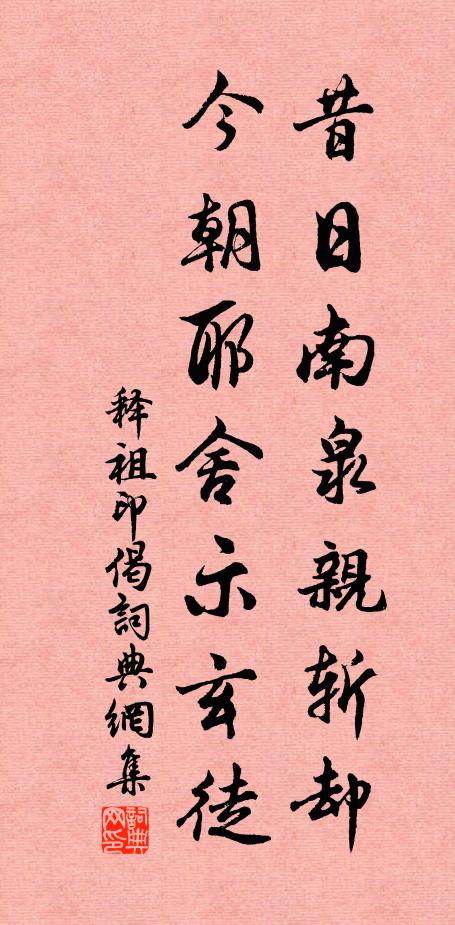 昔日南泉親斬却
今朝耶舍示玄徒
释祖印偈詞典網集
詞典网印